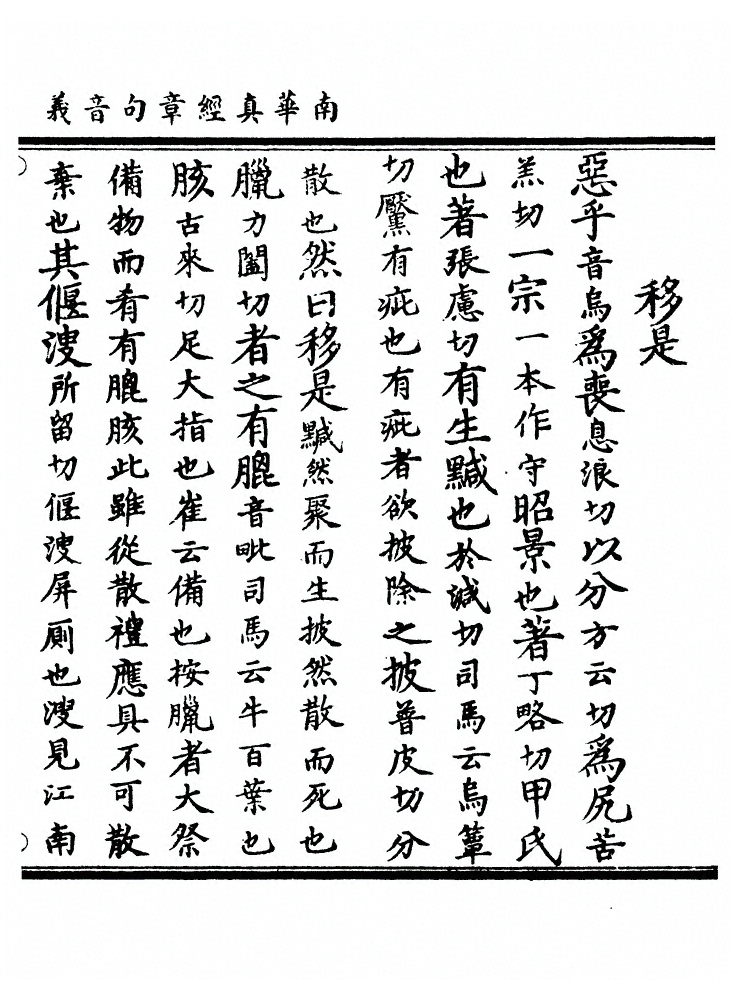 南華真經章句音義
移是
惡乎音烏爲喪息浪切以分方云切爲尻苦
羔切一宗一本作守昭景也著丁略切甲氏
也著張慮切有生黬也於減切司馬云烏簟
切黶有疵也有疵者欲披除之披普皮切分
散也然曰移是黬然聚而生披然散而死也
臘力闔切者之有膍音毗司馬云牛百葉也
胲古來切足大指也崔云備也按臘者大祭
備物而肴有膍胲此雖從散禮應具不可散
棄也其偃溲所留切偃溲屏厠也溲見江南